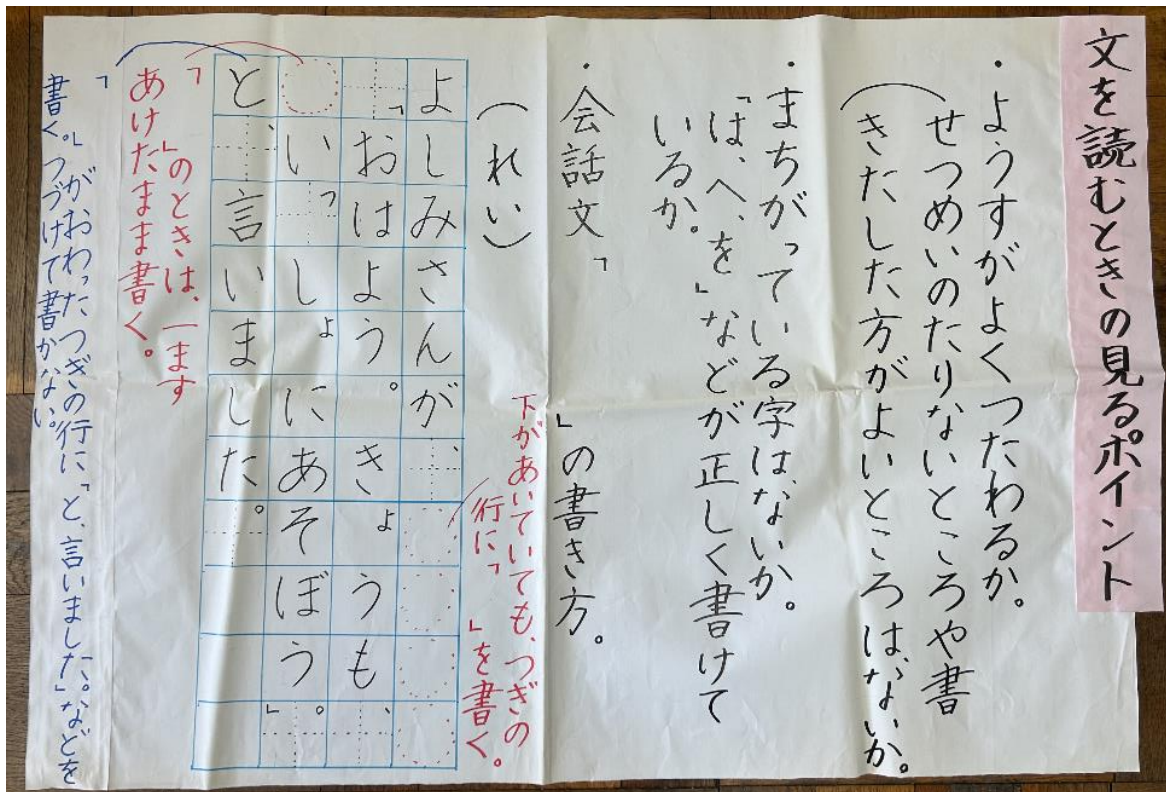 文を読むときの見るポイント
・ようすがよくつたわるか。
(せつめいのたりないところや書
きたした方がよいところはないか。
・まちがっている字はないか。
「は、へ、を」などが正しく書けて
いるか。
・会話文「　」の書き方。
(れい)
下があいていても、つぎの
行に「　」を書く。
よしみさんが、
「おはよう。きょうも、
いっしょにあそぼう。」
と、言いました。
「　」のときは、一ます
あけたまま書く。
「　」がおわったつぎの行に「と、言いました。」などを
書く。つづけて書かない。